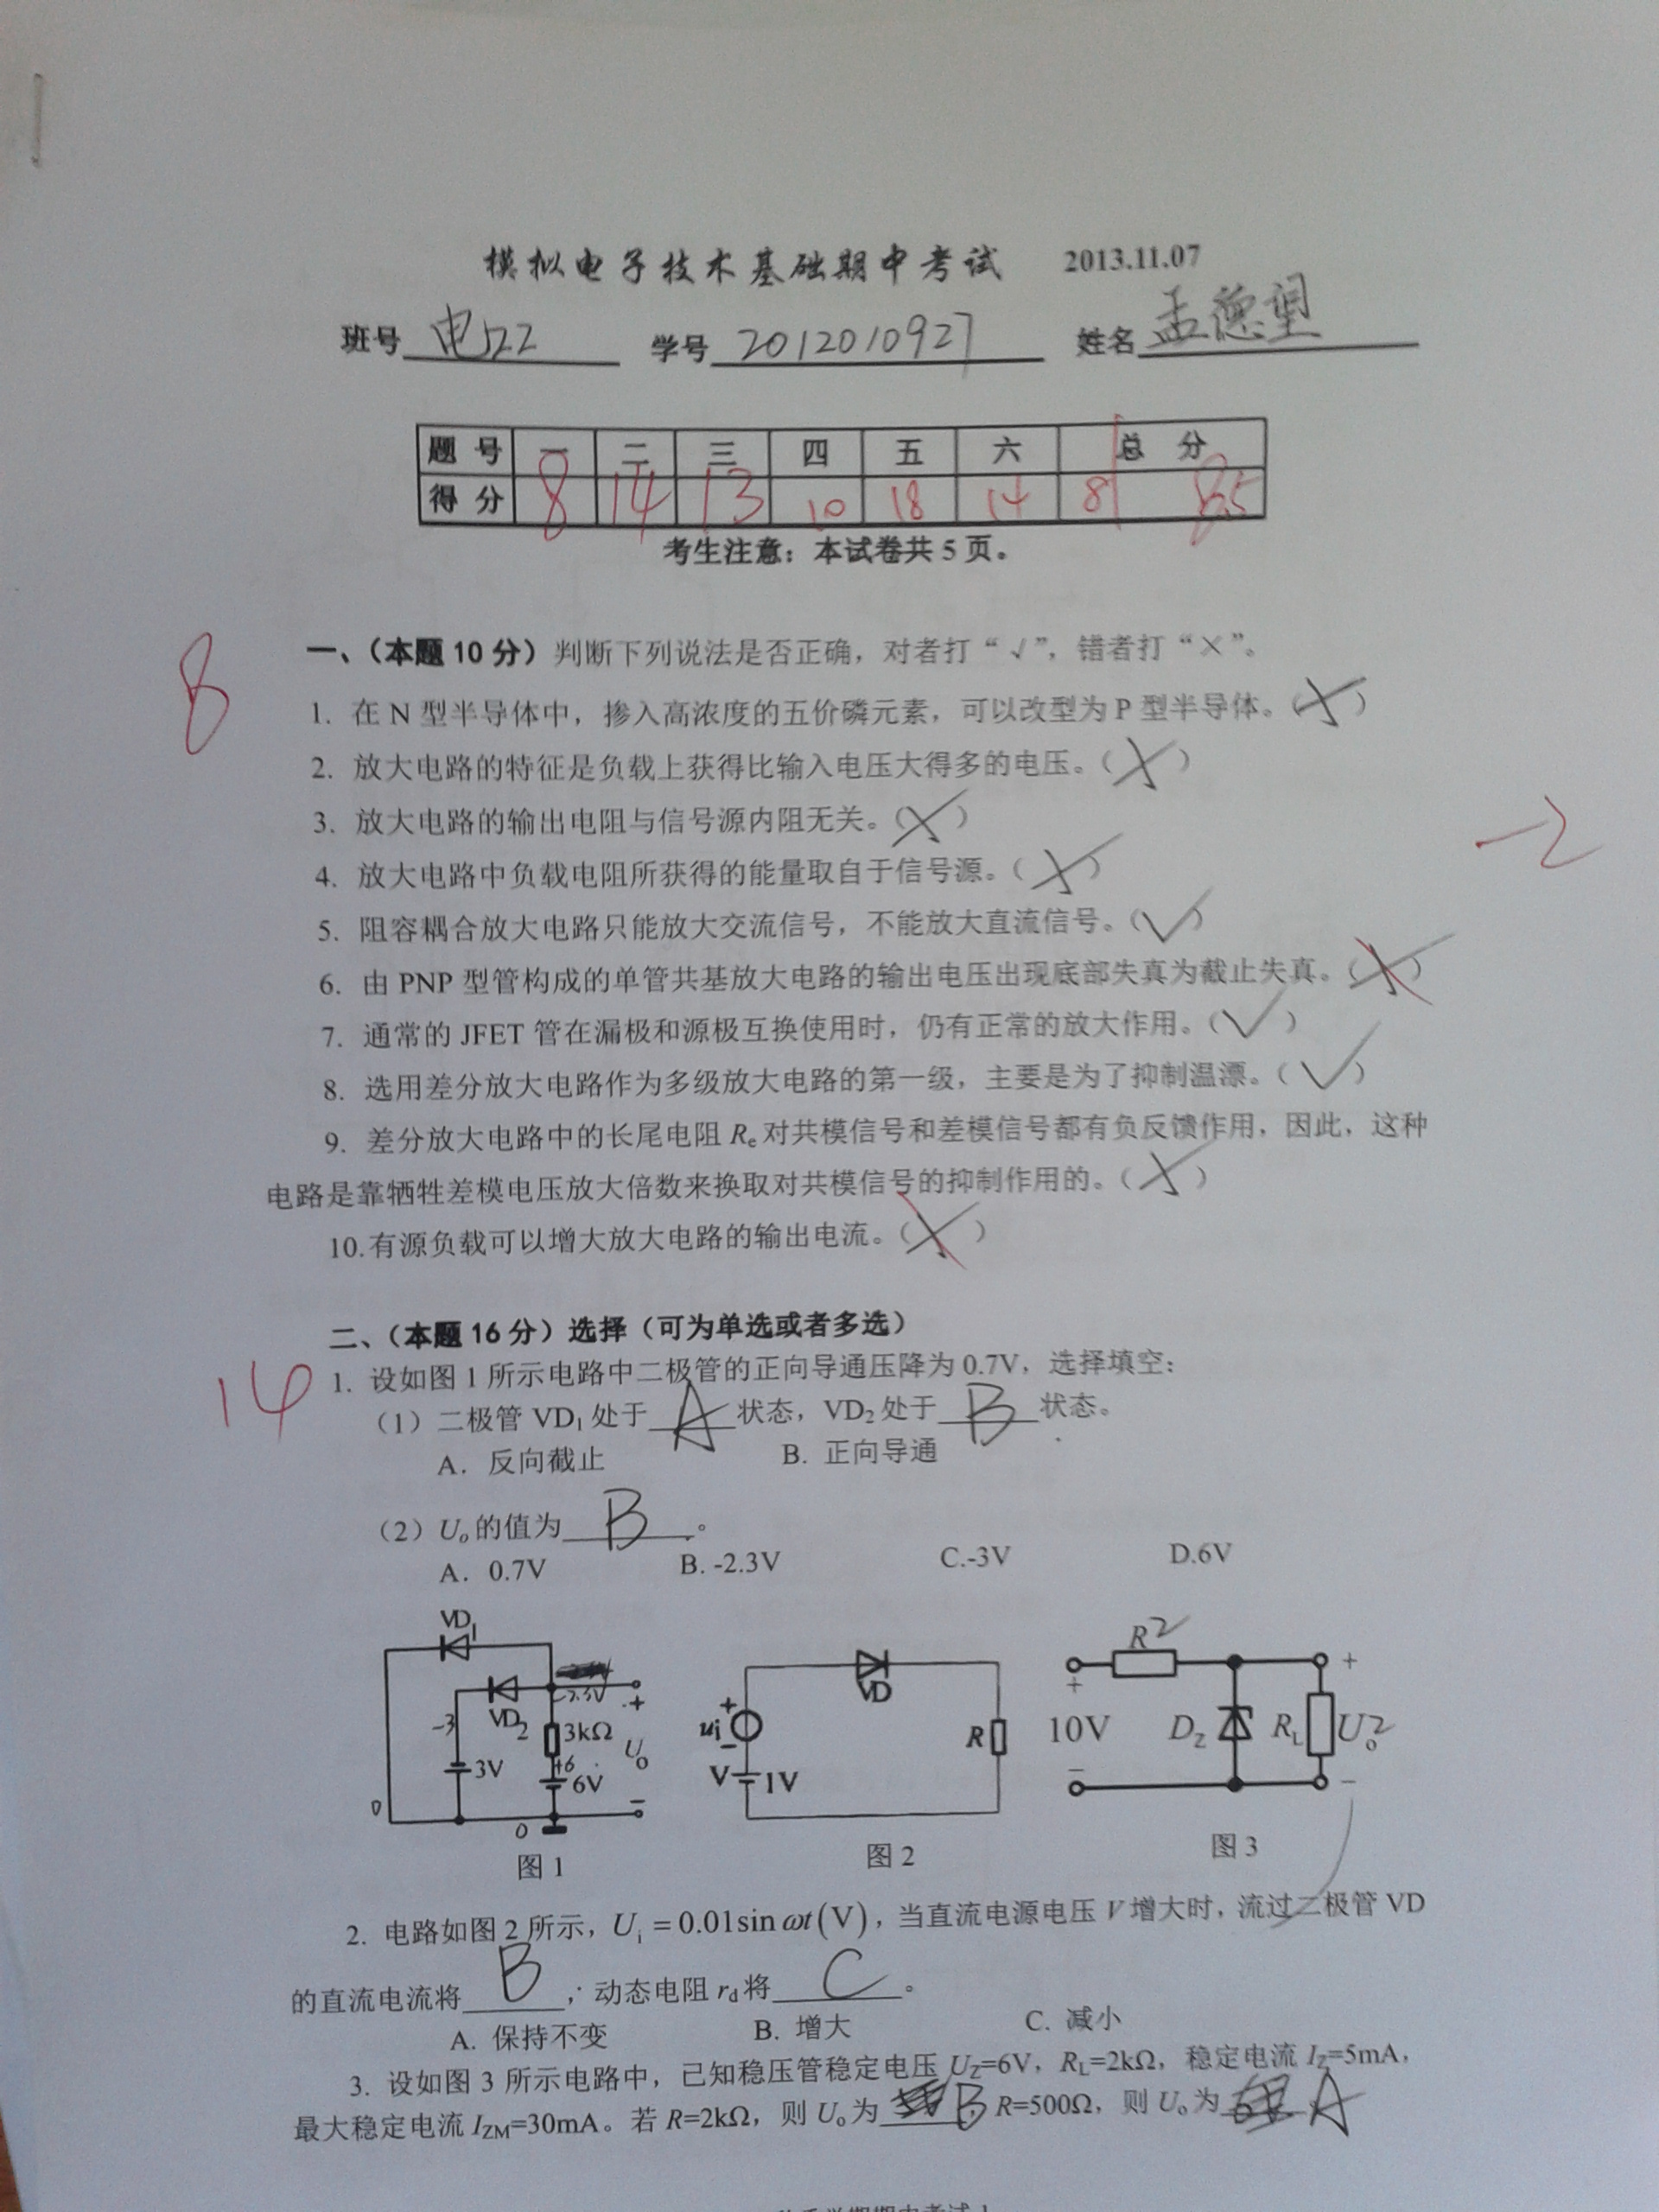 模拟电子技术基础期中考试 2013.11.07
班号 电22 学号 2012010927 姓名
题号 一 二 三 四 五 六 总分
得分 8 14 13 10 18 14 81
考生注意：本试卷共 5 页。
8
一、（本题 10 分）判断下列说法是否正确，对者打“√”，错者打“×”。
1. 在 N 型半导体中，掺入高浓度的五价磷元素，可以改型为 P 型半导体。（×）
2. 放大电路的特征是负载上获得比输入电压大得多的电压。（×）
3. 放大电路的输出电阻与信号源内阻无关。（×）
4. 放大电路中负载电阻所获得的能量取自于信号源。（×）
5. 阻容耦合放大电路只能放大交流信号，不能放大直流信号。（√）
6. 由 PNP 型管构成的单管共基放大电路的输出电压出现底部失真为截止失真。（×）
7. 通常的 JFET 管在漏极和源极互换使用时，仍有正常的放大作用。（√）
8. 选用差分放大电路作为多级放大电路的第一级，主要是为了抑制温漂。（√）
9. 差分放大电路中的长尾电阻 Re 对共模信号和差模信号都有负反馈作用，因此，这种
电路是靠牺牲差模电压放大倍数来换取对共模信号的抑制作用的。（×）
10.有源负载可以增大放大电路的输出电流。（×）
-2
14
二、（本题 16 分）选择（可为单选或者多选）
1. 设如图 1 所示电路中二极管的正向导通压降为 0.7V，选择填空：
（1）二极管 VD1 处于 A 状态，VD2 处于 B 状态。
A. 反向截止 B. 正向导通
（2）Uo的值为 B 。
A. 0.7V B. -2.3V C.-3V D.6V
VD1 VD2 -3 3V 3kΩ 6V Uo + - 0 0
ui + - V 1V VD R
10V + - R 2 DZ RL Uo 2 + -
图 1 图 2 图 3
2. 电路如图 2 所示，Ui = 0.01sin ωt(V)，当直流电源电压 V 增大时，流过二极管 VD
的直流电流将 B ，动态电阻 rd将 C 。
A. 保持不变 B. 增大 C. 减小
3. 设如图 3 所示电路中，已知稳压管稳定电压 UZ=6V，RL=2kΩ，稳定电流 IZ=5mA，
最大稳定电流 IZM=30mA。若 R=2kΩ，则 Uo为 B R=500Ω，则 Uo为 A